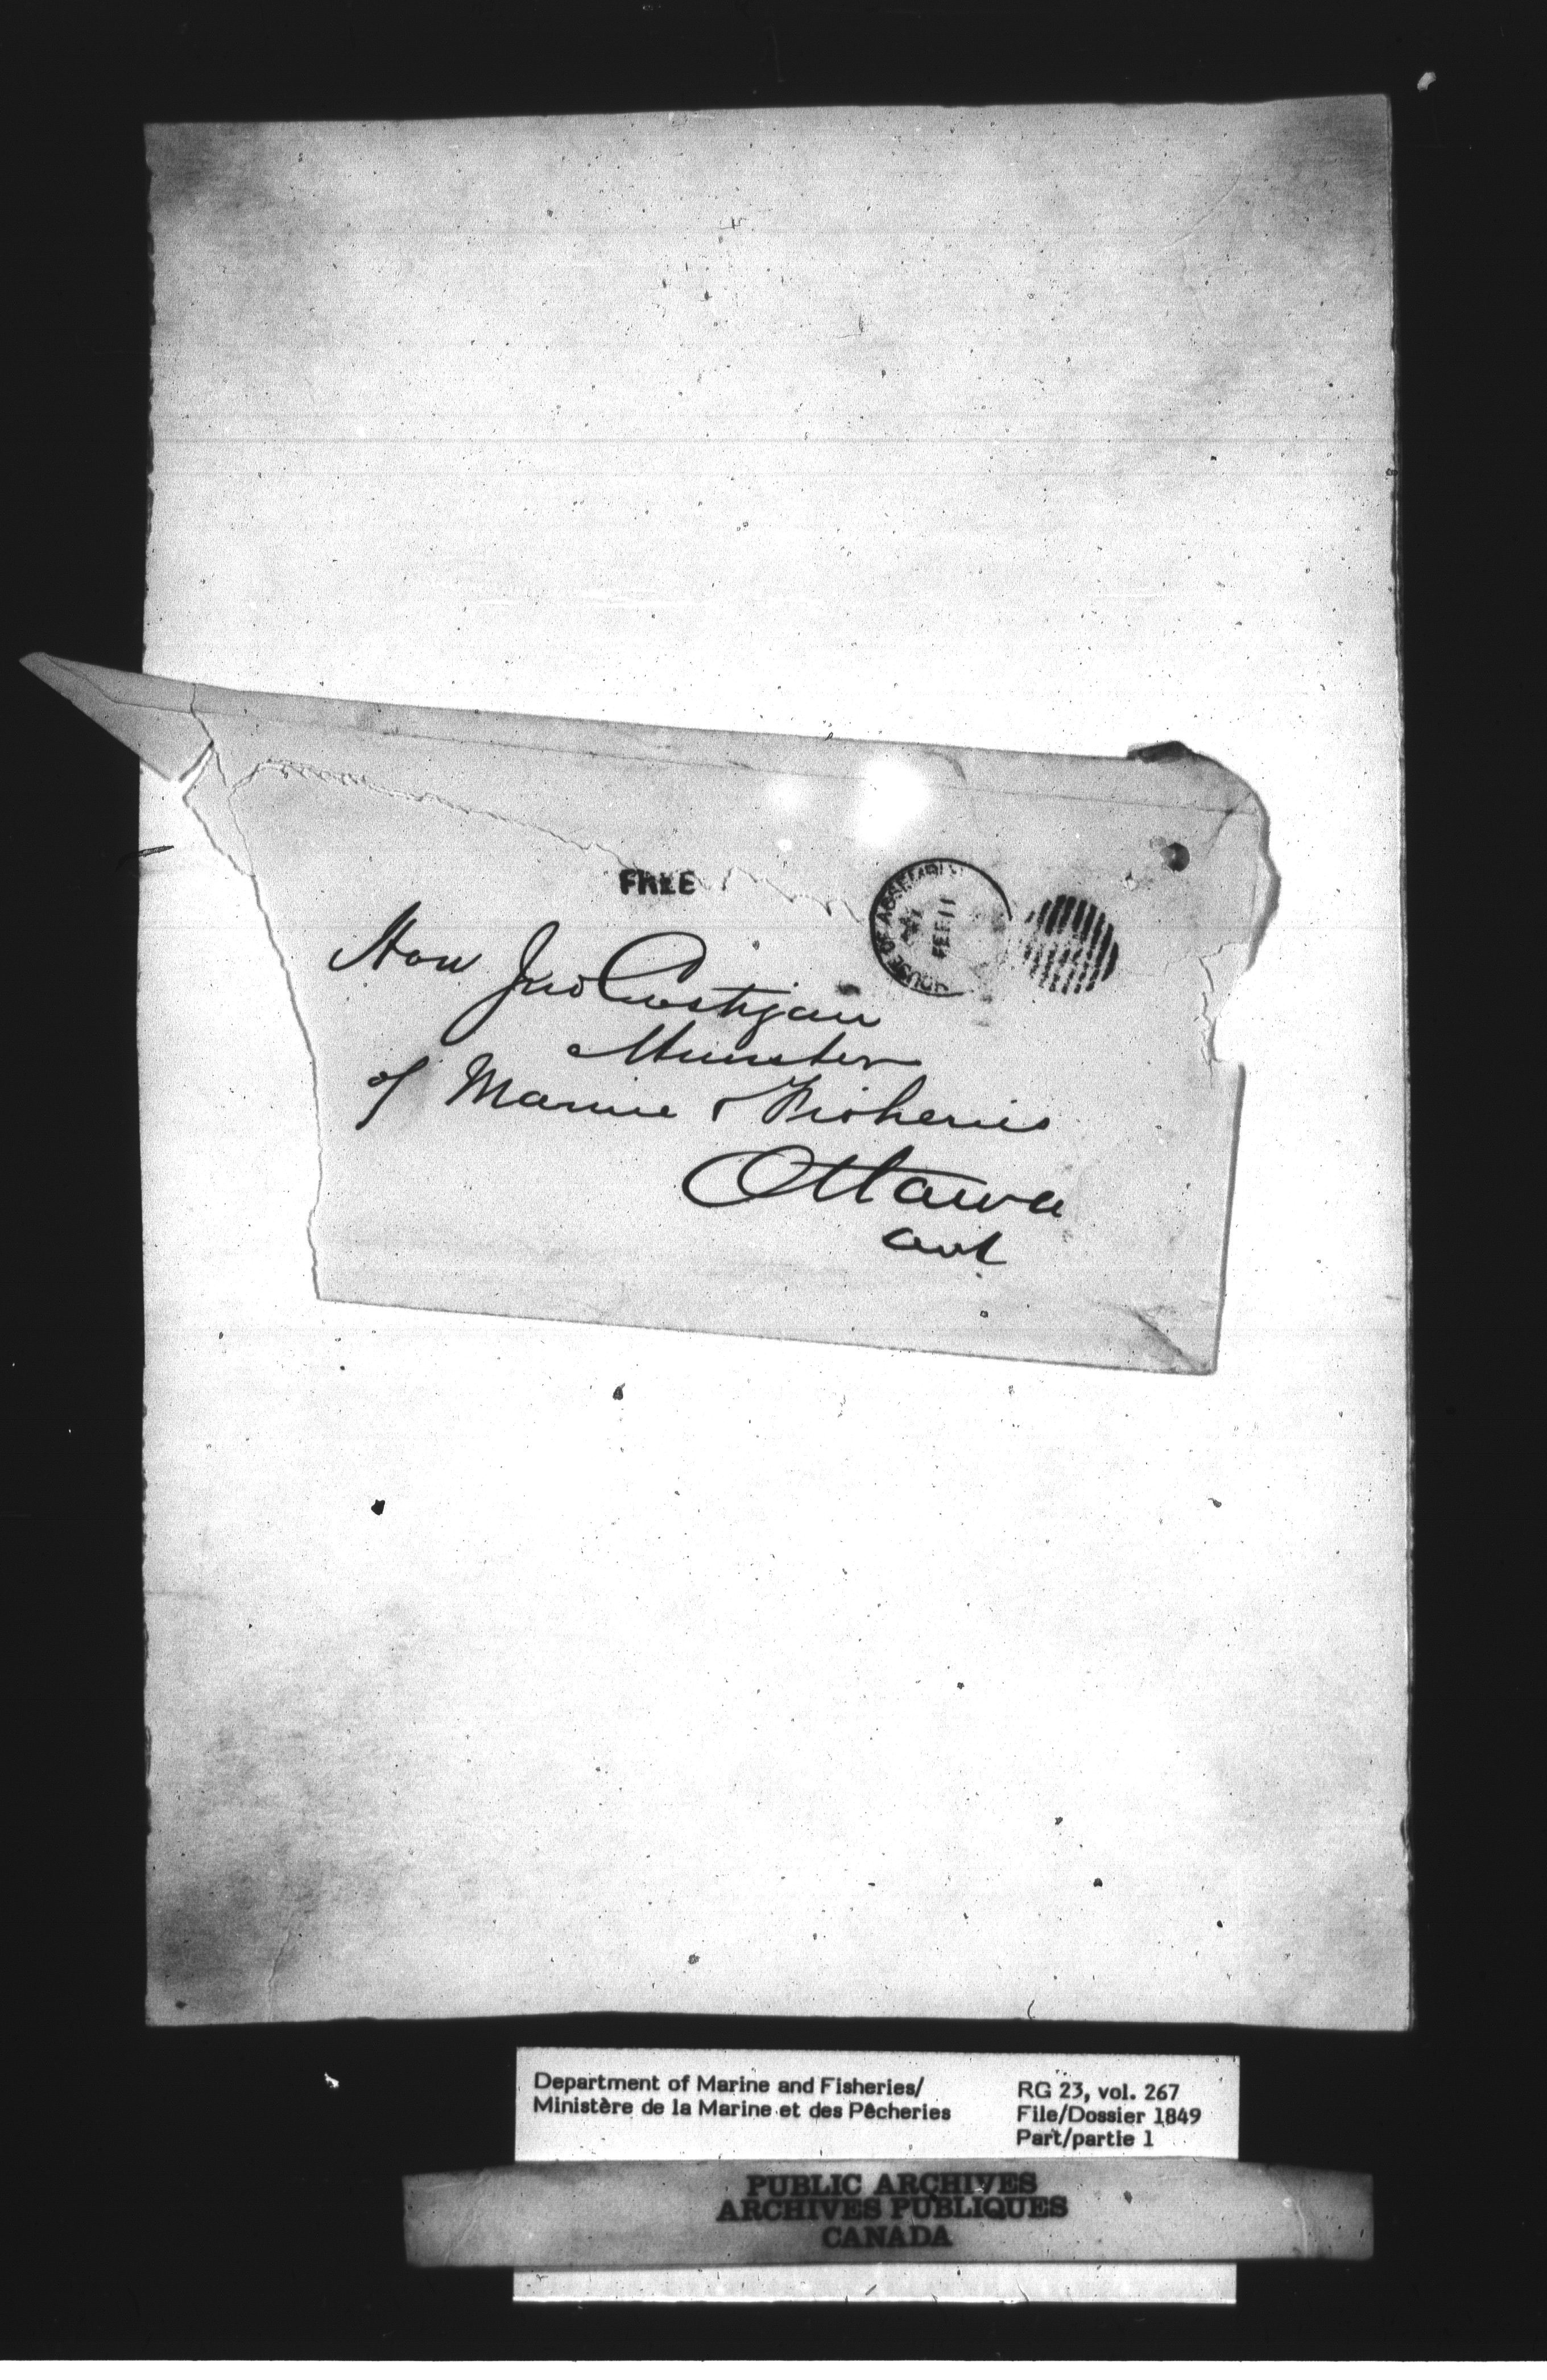 FREE
HOUSE OF ASSEMBLY
FEB 11
Hon Jno Costigan
Minister
of Marine & Fisheries
Ottawa
Ont
Department of Marine and Fisheries/
Ministère de la Marine et des Pêcheries
RG 23, vol. 267
File/Dossier 1849
Part/partie 1
PUBLIC ARCHIVES
ARCHIVES PUBLIQUES
CANADA